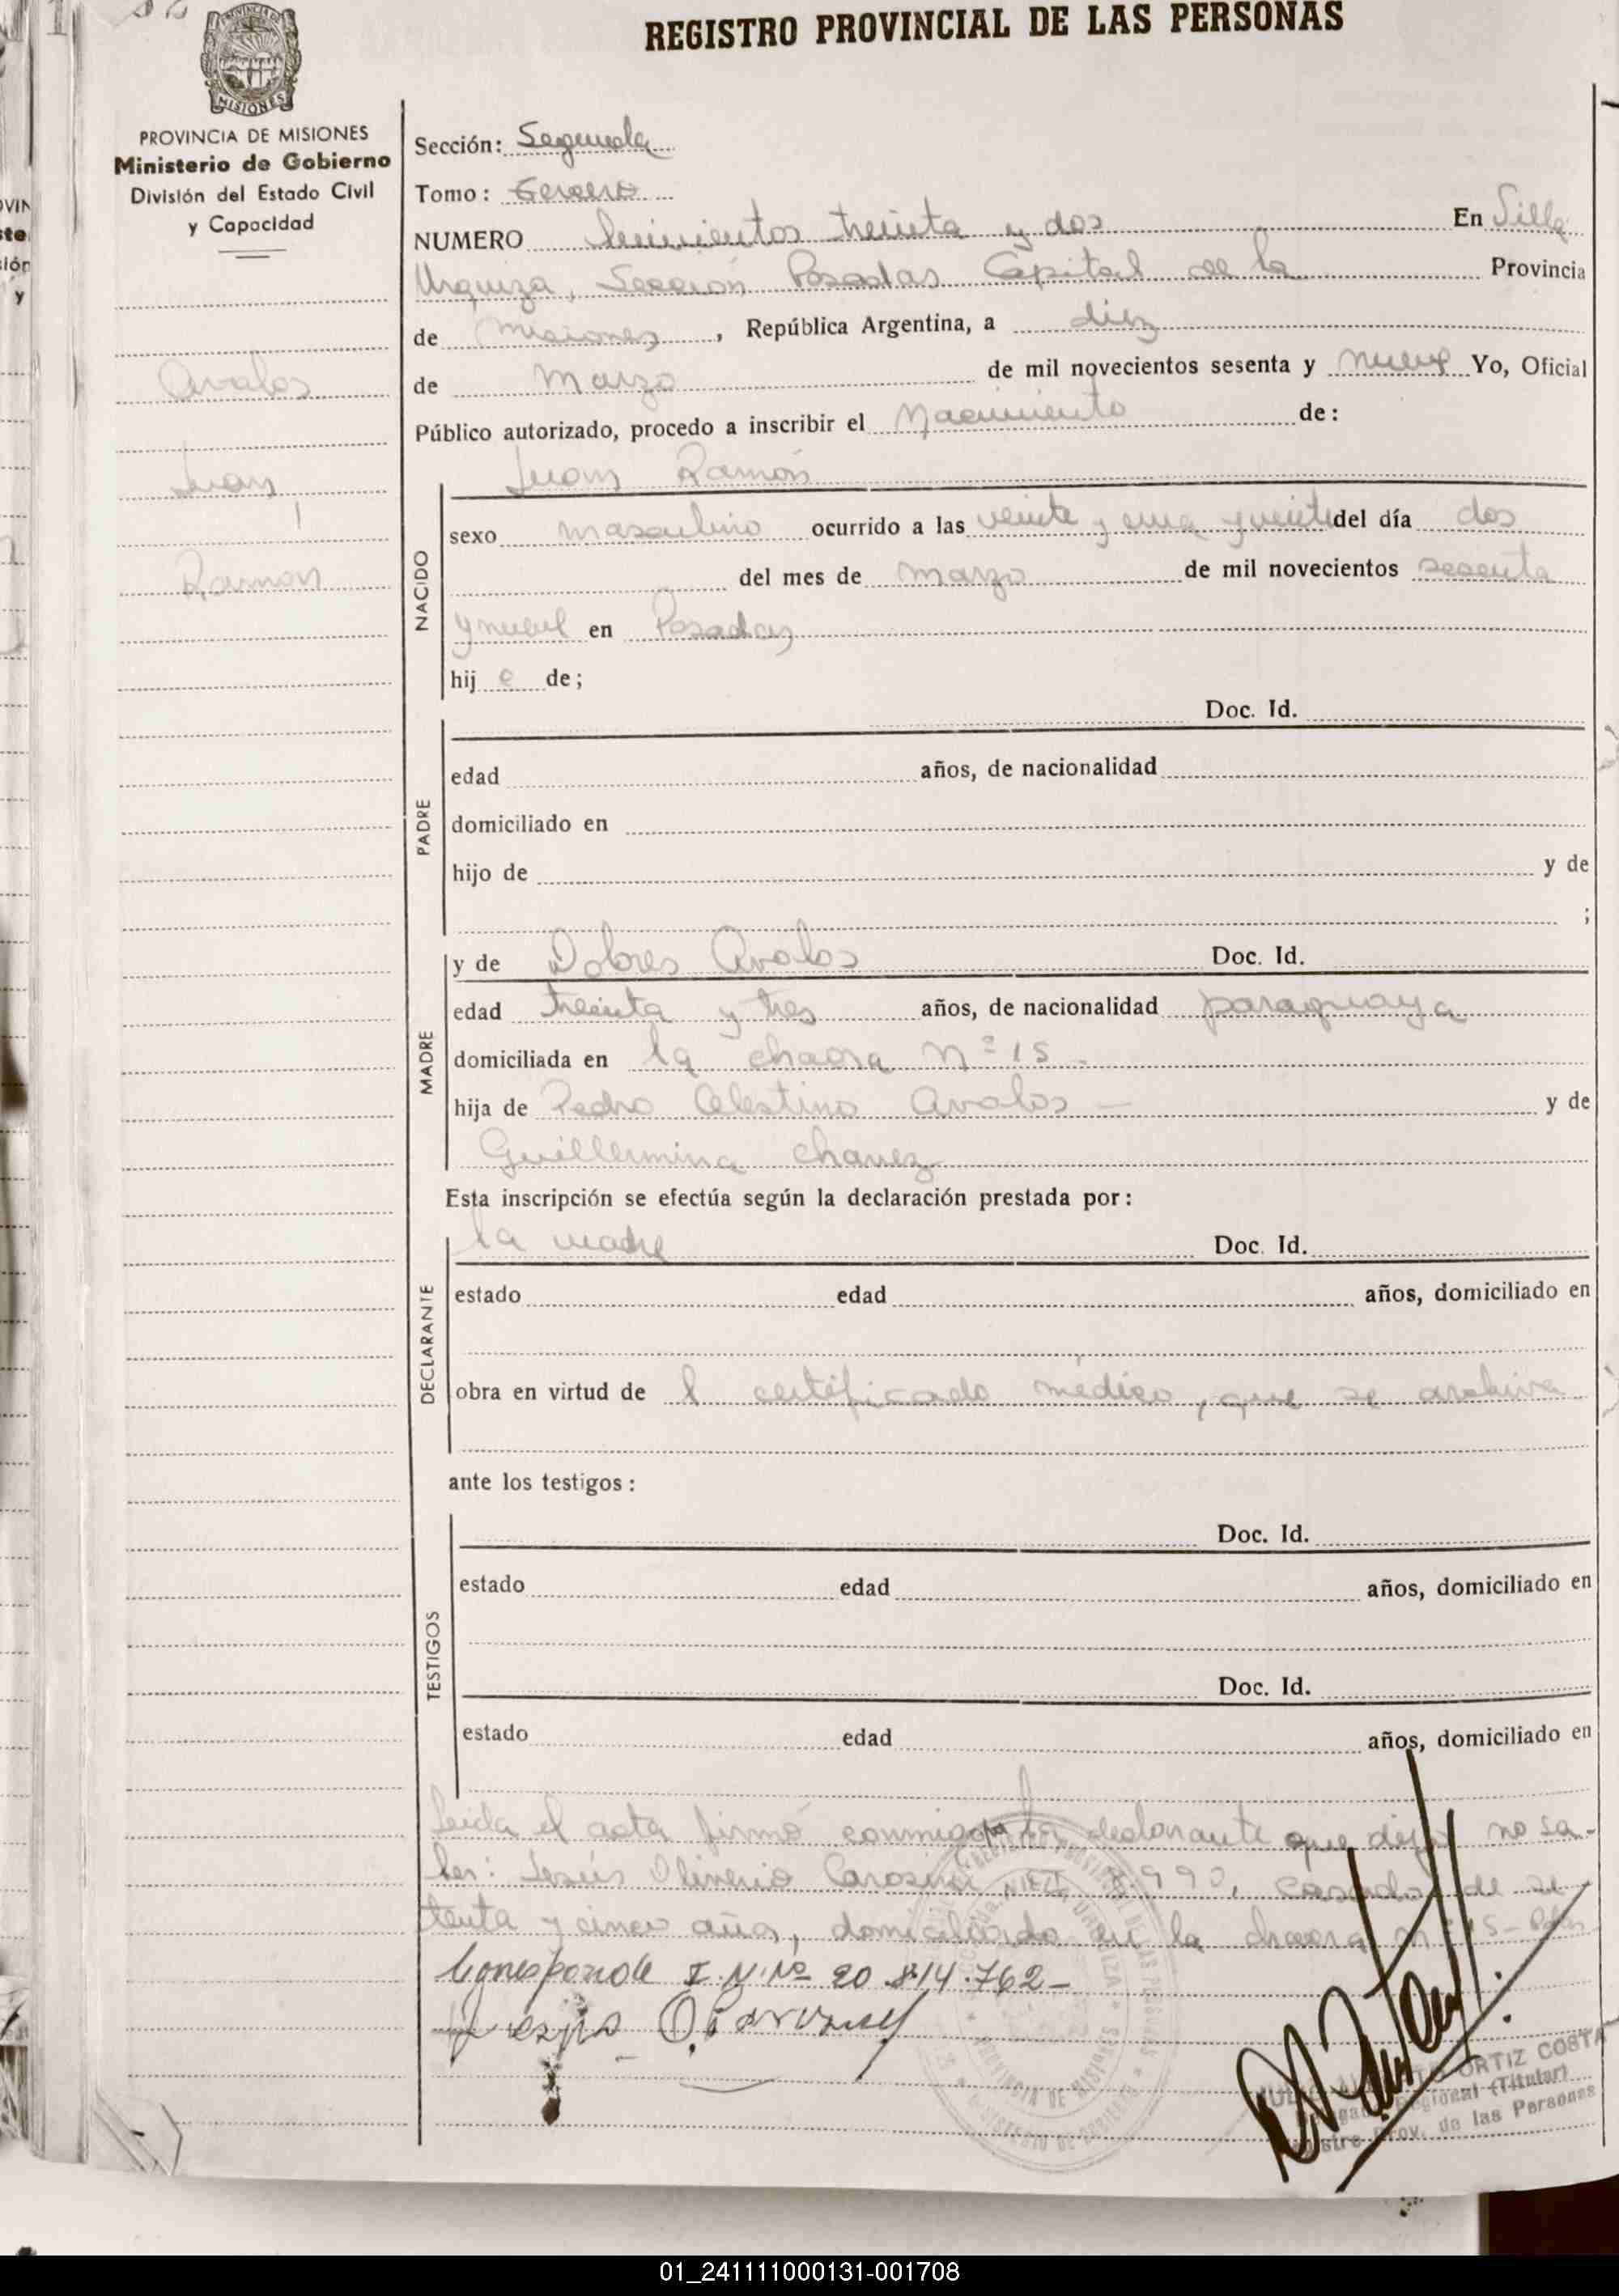 REGISTRO PROVINCIAL DE LAS PERSONAS
MISIONES
PROVINCIA DE MISIONES
Ministerio de Gobierno
División del Estado Civil
y Capacidad
Avalos
Juan
Ramon
Sección: Segunda
Tomo: Tercero
NUMERO treinta y dos En Villa
Urquiza, Sección Posadas Capital de la Provincia
de Misiones, República Argentina, a diez
de Marzo de mil novecientos sesenta y nueve Yo, Oficial
Público autorizado, procedo a inscribir el Nacimiento de:
Juan Ramón
NACIDO
sexo masculino ocurrido a las veinte y una y veinte del día dos
del mes de marzo de mil novecientos sesenta
y nueve en Posadas
hij o de;
PADRE
Doc. Id.
edad años, de nacionalidad
domiciliado en
hijo de y de
;
MADRE
y de Dolores Avalos Doc. Id.
edad treinta y tres años, de nacionalidad paraguaya
domiciliada en la chacra nº 15 -
hija de Pedro Celestino Avalos - y de
Guillermina Chavez
Esta inscripción se efectúa según la declaración prestada por:
DECLARANTE
la madre Doc. Id.
estado edad años, domiciliado en
obra en virtud de l certificado médico, que se archiva
ante los testigos:
TESTIGOS
Doc. Id.
estado edad años, domiciliado en
Doc. Id.
estado edad años, domiciliado en
Leida el acta firmó conmigo por la declarante que dijo no sa-
ber: Jesús Oliverio 990, casado, de se
tenta y cinco años, domiciliado en la chacra nº 15-
Corresponde I. N. Nº 20.814.762-
ORTIZ COSTA
Regional (Titular)
Prov. de las Personas
PROVINCIA DE MISIONES
01_241111000131-001708